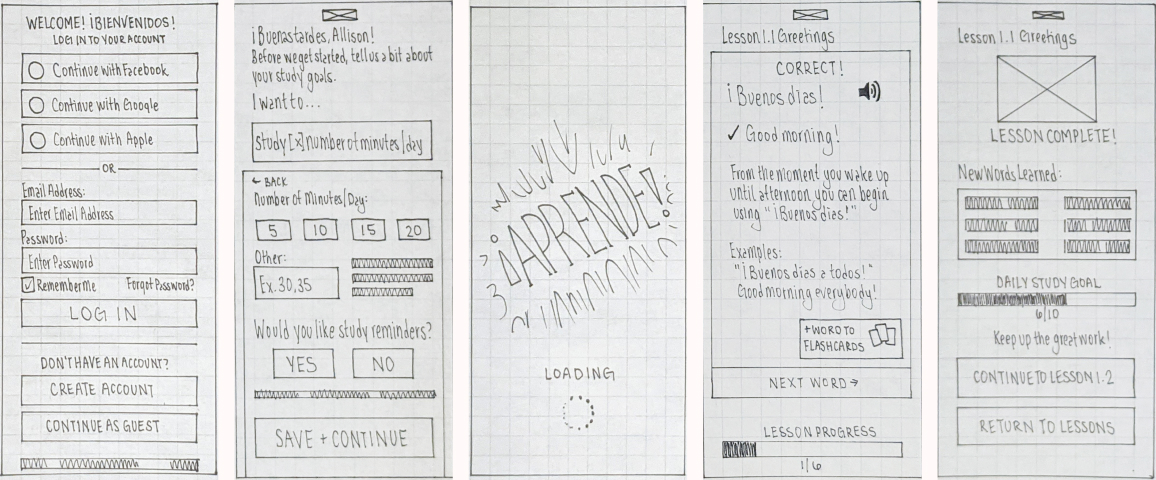 WELCOME! ¡BIENVENIDOS!
LOG IN TO YOUR ACCOUNT
Continue with Facebook
Continue with Google
Continue with Apple
OR
Email Address:
Enter Email Address
Password:
Enter Password
Remember Me
Forgot Password?
LOG IN
DON'T HAVE AN ACCOUNT?
CREATE ACCOUNT
CONTINUE AS GUEST
¡Buenas tardes, Allison!
Before we get started, tell us a bit about
your study goals.
I want to...
study [x] number of minutes/day
← BACK
Number of Minutes/Day:
5 10 15 20
Other:
Ex. 30, 35
Would you like study reminders?
YES NO
SAVE + CONTINUE
¡APRENDE!
LOADING
Lesson 1.1 Greetings
CORRECT!
¡Buenos días!
✓ Good morning!
From the moment you wake up
until afternoon you can begin
using "¡Buenos días!"
Examples:
"¡Buenos días a todos!"
Good morning everybody!
+ WORD TO
FLASHCARDS
NEXT WORD →
LESSON PROGRESS
1/6
Lesson 1.1 Greetings
LESSON COMPLETE!
New Words Learned:
DAILY STUDY GOAL
6/10
Keep up the great work!
CONTINUE TO LESSON 1.2
RETURN TO LESSONS